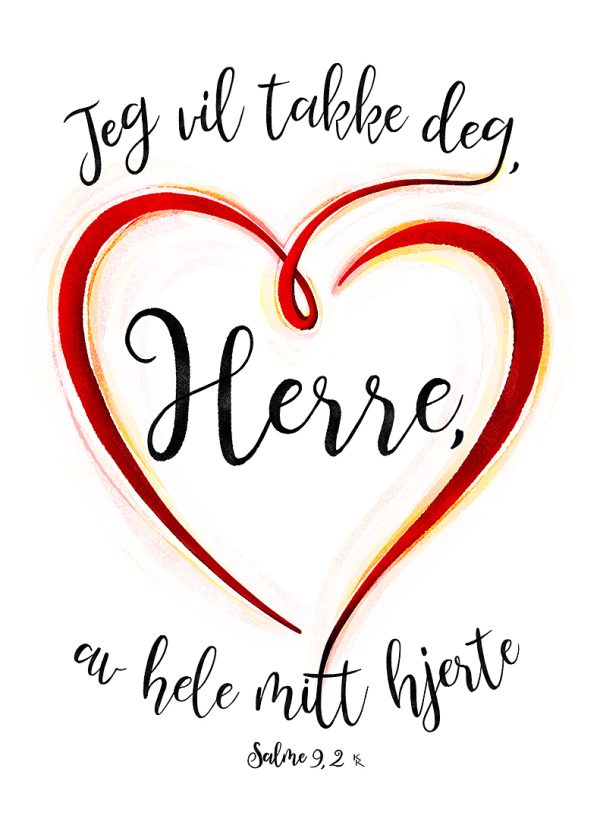 Jeg vil takke deg,
Herre,
av hele mitt hjerte
Salme 9,2